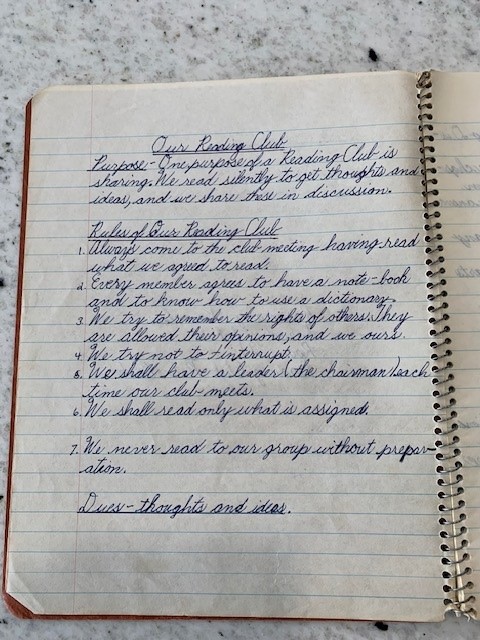 Our Reading Club
Purpose - One purpose of a Reading Club is
sharing. We read silently to get thoughts and
ideas, and we share these in discussion.
Rules of Our Reading Club
1. Always come to the club meeting having read
what we agreed to read.
2. Every member agrees to have a note-book
and to know how to use a dictionary.
3. We try to remember the rights of others. They
are allowed their opinions, and we ours.
4. We try not to interrupt.
5. We shall have a leader (the chairman) each
time our club meets.
6. We shall read only what is assigned.
7. We never read to our group without prepar-
ation.
Dues - thoughts and ideas.